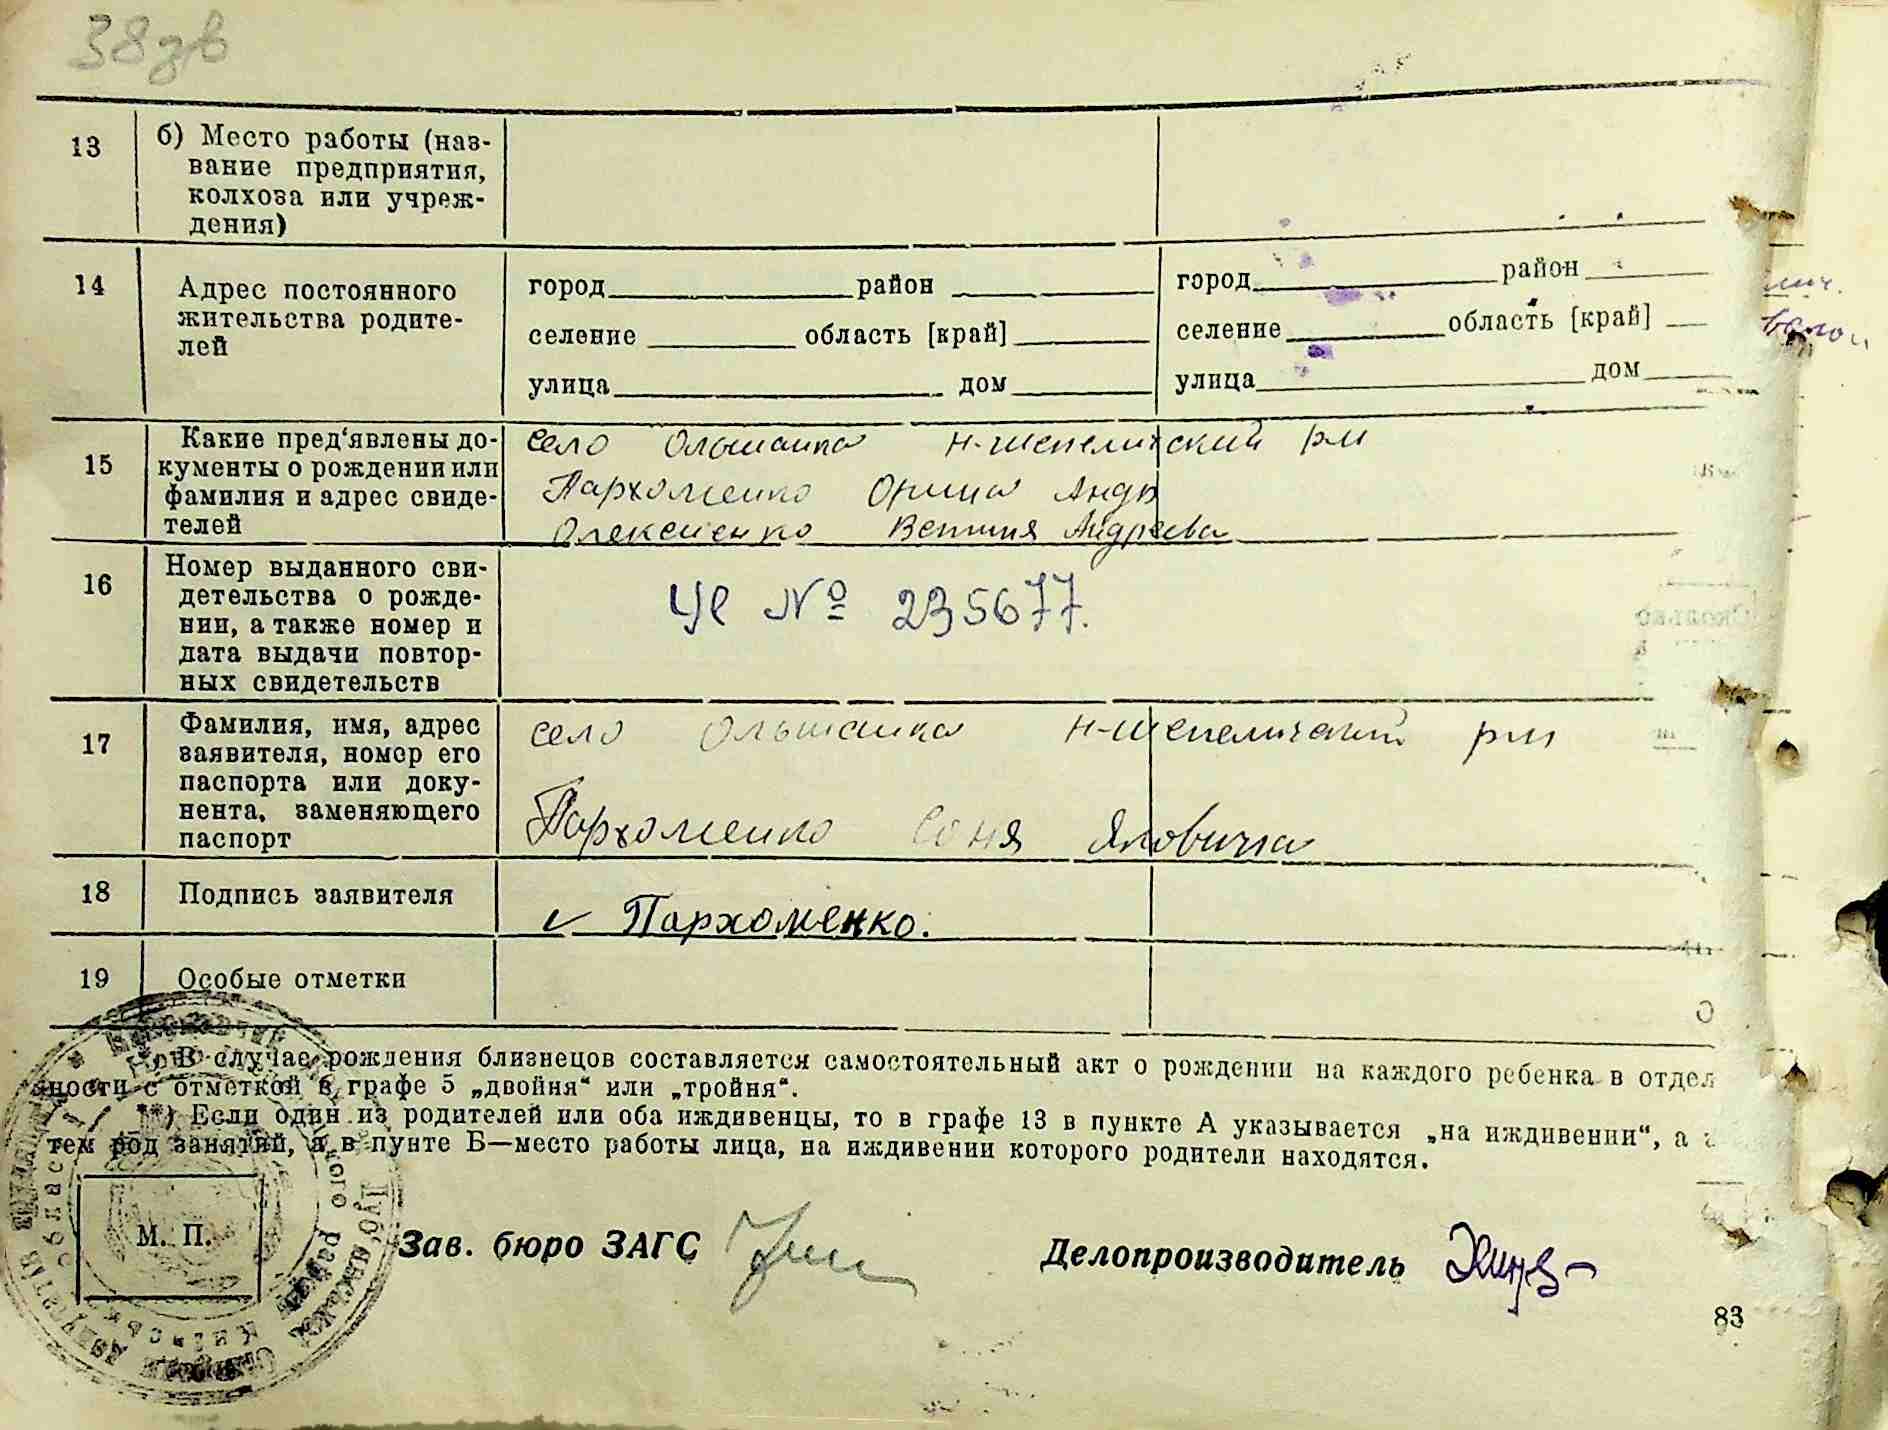 38зв
13
б) Место работы (наз-
вание предприятия,
колхоза или учреж-
дения)
14
Адрес постоянного
жительства родите-
лей
город район
селение область [край]
улица дом
город район
селение область [край]
улица дом
15
Какие пред'явлены до-
кументы о рождении или
фамилия и адрес свиде-
телей
село Ольшанка Н-Шепелический р-н
Пархоменко Орина Андр
Олексиенко Андреевна
16
Номер выданного сви-
детельства о рожде-
нии, а также номер и
дата выдачи повтор-
ных свидетельств
№ 235677.
17
Фамилия, имя, адрес
заявителя, номер его
паспорта или доку-
нента, заменяющего
паспорт
село Ольшанка Н-Шепелический р-н
Пархоменко Соня
18
Подпись заявителя
Пархоменко.
19
Особые отметки
В случае рождения близнецов составляется самостоятельный акт о рождении на каждого ребенка в отдел
ности с отметкой в графе 5 „двойня“ или „тройня“.
**) Если один из родителей или оба иждивенцы, то в графе 13 в пункте А указывается „на иждивении“, а
тем род занятий, а в пункте Б—место работы лица, на иждивении которого родители находятся.
М. П.
Зав. бюро ЗАГС
Делопроизводитель
83